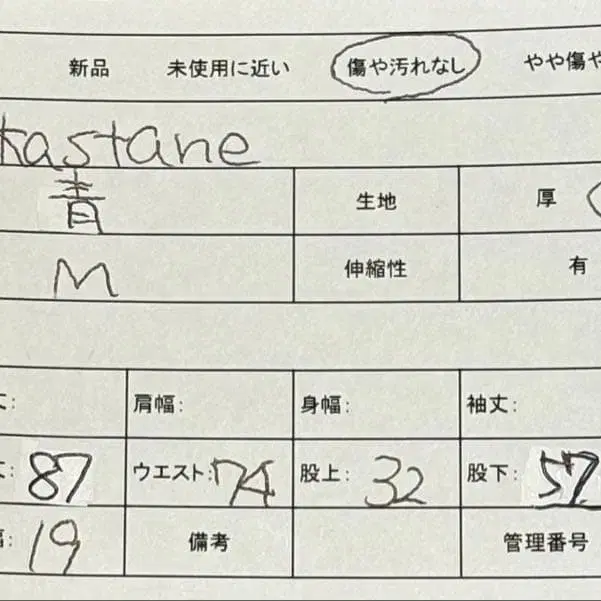 新品 未使用に近い 傷や汚れなし やや傷や
kastane
青 生地 厚
M 伸縮性 有
丈: 肩幅: 身幅: 袖丈:
丈: 87 ウエスト: 74 股上: 32 股下: 57
幅: 19 備考 管理番号